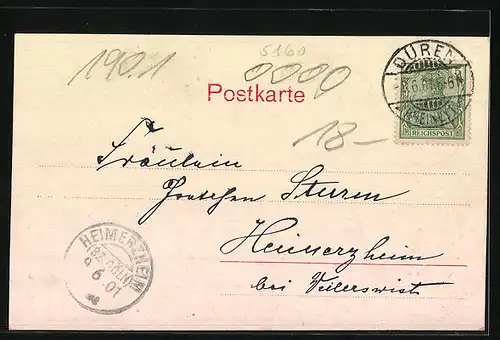 1901
5160
0000
Postkarte
18-
DÜREN
8.6.01
(RHEINL.)
REICHSPOST
Fräulein
Gretchen Sturen
Heimerzheim
bei Weilerswist
HEIMERZHEIM
(BZ. CÖLN)
9.6.01